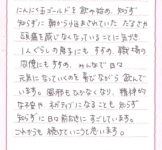 にんにく玉ゴールドを飲み始め、知らず
知らずに朝から悩まされていただるさや
頭痛を感じなくなっていることに気が
1人ぐらしの息子にも すすめ、職場の
同僚にもすすめ、みんなで日々
元気になっていくのを喜びながら飲んで
います。風邪もひかなくなり、精神的
な事や ネガティブになることも知らず
知らずに日々前向きにすごしています。
これからも続けていこうと思います。